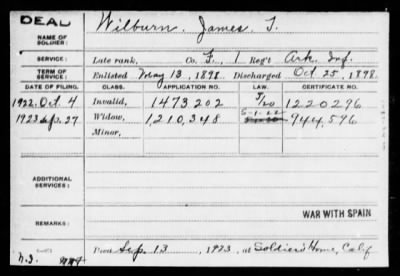 DEAD
NAME OF SOLDIER: Wilburn, James T.
SERVICE: Late rank, Co. F, 1 Reg't Ark. Inf.
TERM OF SERVICE: Enlisted May 13, 1898. Discharged Oct 25, 1898.
DATE OF FILING. CLASS. APPLICATION NO. LAW. CERTIFICATE NO.
1922. Oct 4 Invalid, 1473202 5/20 1220296
1923 Sep. 27 Widow, 1,210,348 944,596
Minor,
ADDITIONAL SERVICES:
WAR WITH SPAIN
REMARKS:
Died Sep. 13, 1923, at Soldiers' Home, Calif